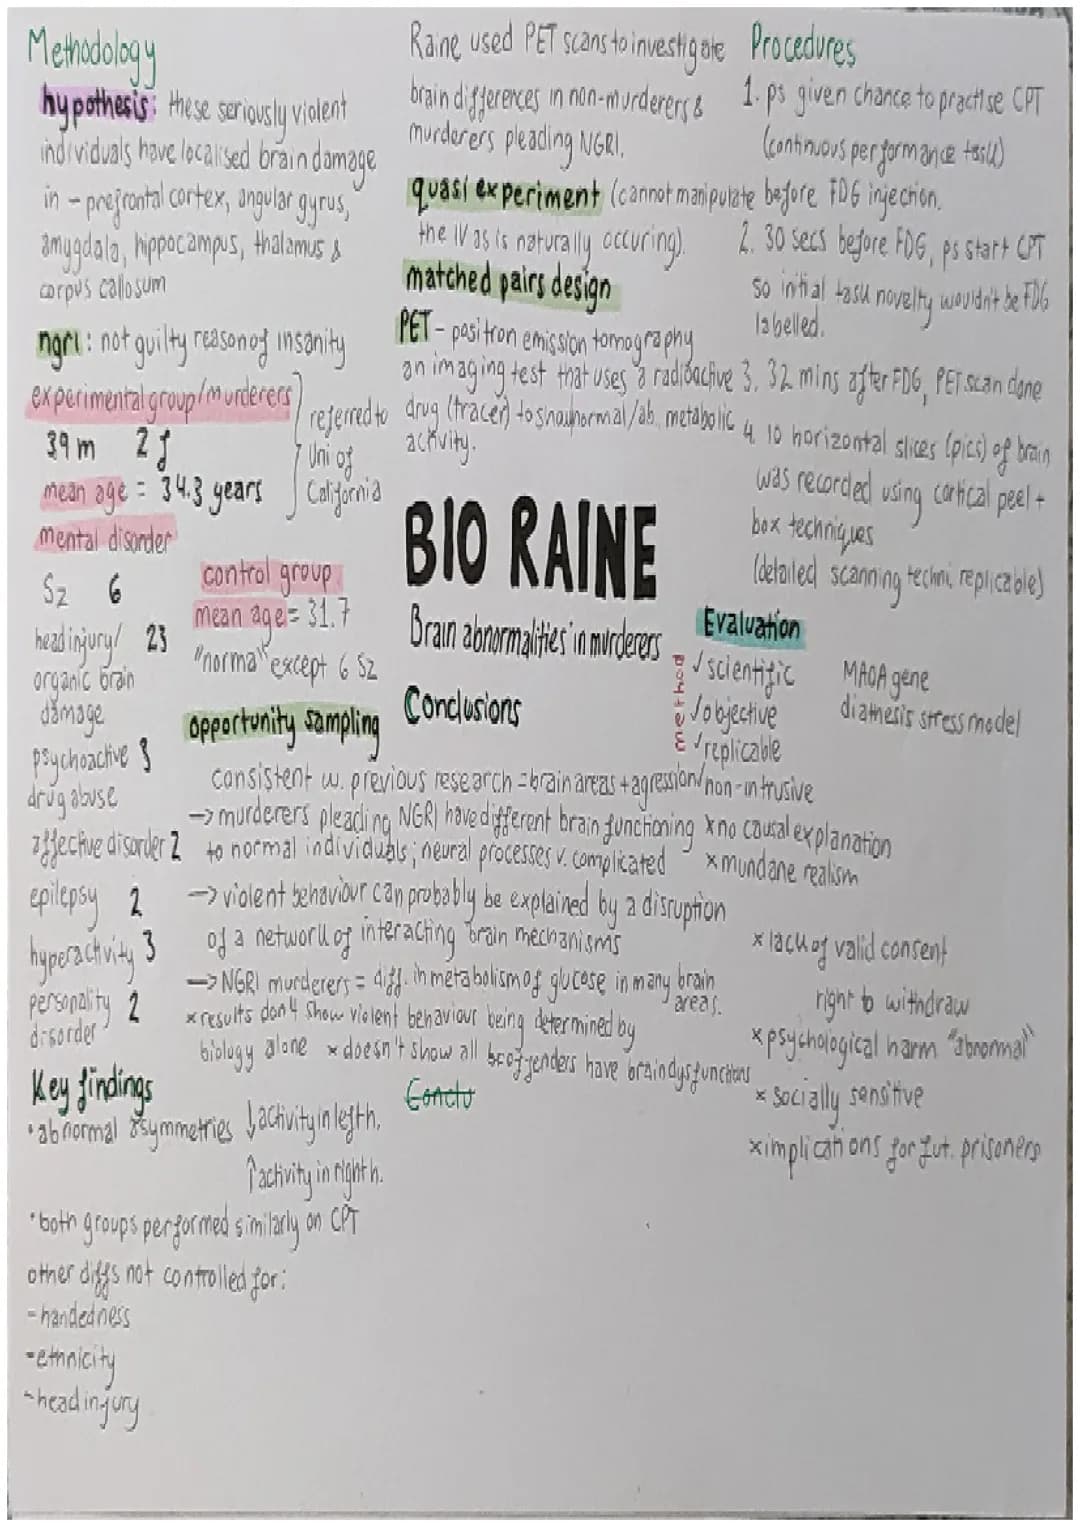 Methodology
hypothesis: these seriously violent
individuals have localised brain damage
in - prefrontal cortex, angular gyrus,
amygdala, hippocampus, thalamus &
corpus callosum
ngri: not guilty reason of insanity
experimental group/murderers
39 m 2 f
mean age = 34.3 years
referred to
Uni of
California
mental disorder
Sz 6
head injury/ 23
organic brain
damage
psychoactive 3
drug abuse
affective disorder 2
epilepsy 2
hyperactivity 3
personality 2
disorder
control group
mean age = 31.7
"normal" except 6 Sz
opportunity sampling
Key findings
•abnormal asymmetries ↓activity in left h.
↑activity in right h.
•both groups performed similarly on CPT
other diffs not controlled for:
- handedness
- ethnicity
- head injury
Raine used PET scans to investigate
brain differences in non-murderers &
murderers pleading NGRI.
quasi experiment (cannot manipulate
the IV as is naturally occuring).
matched pairs design
PET - positron emission tomography
an imaging test that uses a radioactive
drug (tracer) to show normal/ab. metabolic
activity.
BIO RAINE
Brain abnormalities in murderers
Conclusions
consistent w. previous research = brain areas + agression
→ murderers pleading NGRI have different brain functioning
to normal individuals; neural processes v. complicated
→ violent behaviour can probably be explained by a disruption
of a network of interacting brain mechanisms
→ NGRI murderers = diff. in metabolism of glucose in many brain
areas.
x results don't show violent behaviour being determined by
biology alone x doesn't show all offenders have brain dysfunctions
Conclu
Procedures
1. ps given chance to practise CPT
(continuous performance task)
before FDG injection.
2. 30 secs before FDG, ps start CPT
so initial task novelty wouldn't be FDG
labelled.
3. 32 mins after FDG, PET scan done
4. 10 horizontal slices (pics) of brain
was recorded using cortical peel +
box techniques
(detailed scanning techni. replicable)
Evaluation
method
✓ scientific
✓ objective
✓ replicable
✓ non-intrusive
x no causal explanation
x mundane realism
MAOA gene
diathesis stress model
x lack of valid consent
right to withdraw
x psychological harm "abnormal"
x socially sensitive
x implications for fut. prisoners